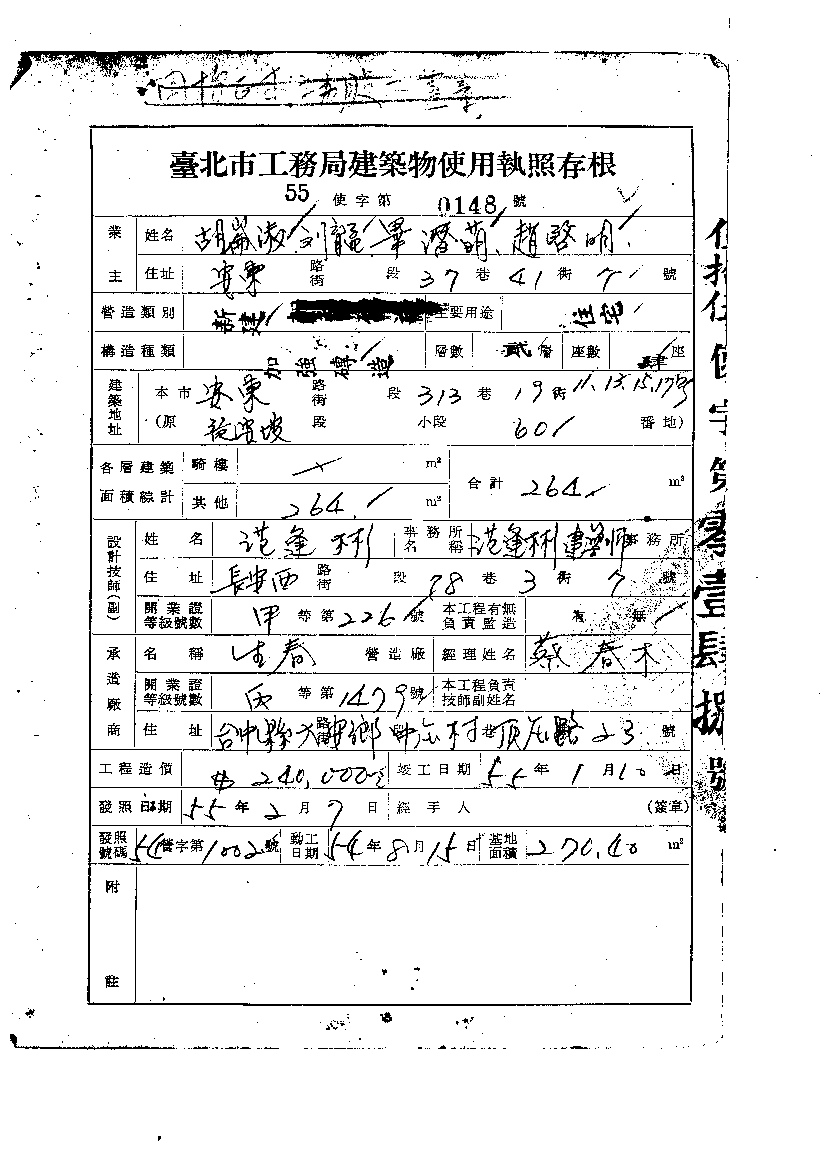 臺北市工務局建築物使用執照存根
55 使字第 0148 號
業主 姓名 趙啓明
住址 安東 路街 段 37 巷 41 衖 7 號
營造類別 新建 主要用途 住宅
構造種類 加強磚造 層數 貳 層 座數 肆 座
建築地址 本市 安東 路街 段 313 巷 19 衖 11.13.15.17號
(原 段 小段 601 番地)
各層建築面積總計 騎樓 m² 合計 264 m²
其他 264 m²
設計技師(副) 姓名 范逢彬 事務所名稱 范逢彬建築師事務所
住址 長安西 路街 段 78 巷 3 衖 7 號
開業證等級號數 甲 等第 226 號 本工程有無負責監造 有 無
承造廠商 名稱 生春 營造廠 經理姓名 蔡春木
開業證等級號數 丙 等第 1479 號 本工程負責技師副姓名
住址 台中縣大 鄉 村 巷 路 23 號
工程造價 240,000 竣工日期 55 年 1 月 10 日
發照日期 55 年 2 月 7 日 經手人 (簽章)
發照號碼 54 營字第 1002 號 動工日期 54 年 8 月 15 日 基地面積 270.40 m²
附註
字第零壹肆捌號